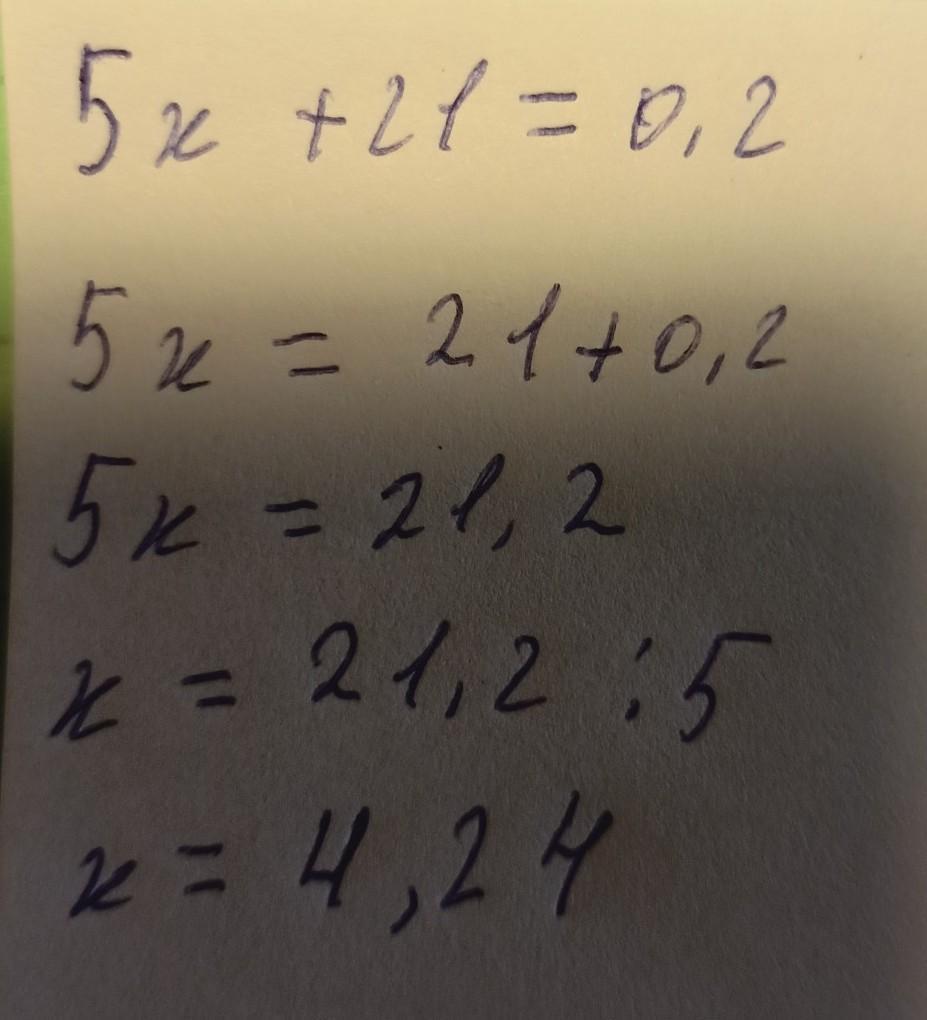 5x + 21 = 0,2
5x = 21 + 0,2
5x = 21,2
x = 21,2 : 5
x = 4,24